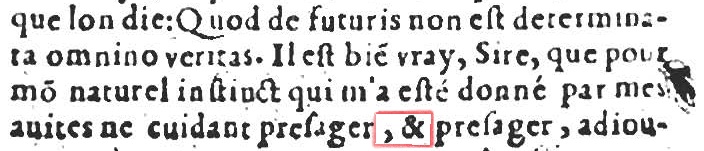 que lon die: Quod de futuris non eſt determina-
ta omnino veritas. Il eſt biẽ vray, Sire, que pour
mõ naturel inſtinct qui m'a eſté donné par mes
auites ne cuidant preſager, & preſager, adiou-